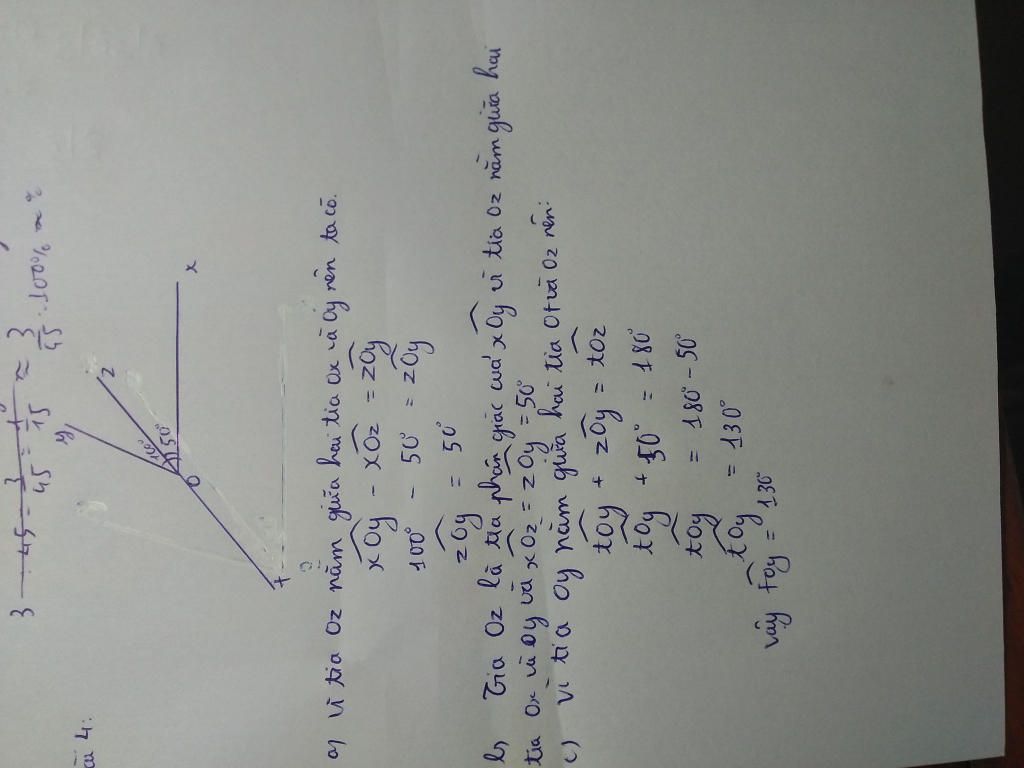 3 : 45 = 3/45 = 1/15 ≈ 3/45 . 100% ≈ %
4:
y
z
50°
O
x
t
a) Vì tia Oz nằm giữa hai tia Ox và Oy nên ta có.
xOy - xOz = zOy
100° - 50° = zOy
zOy = 50°
b, Tia Oz là tia phân giác cuả xOy vì tia Oz nằm giữa hai
tia Ox và Oy và xOz = zOy = 50°
c) Vì tia Oy nằm giữa hai tia Ot và Oz nên:
tOy + zOy = tOz
tOy + 50° = 180°
tOy = 180° - 50°
tOy = 130°
Vậy tOy = 130°